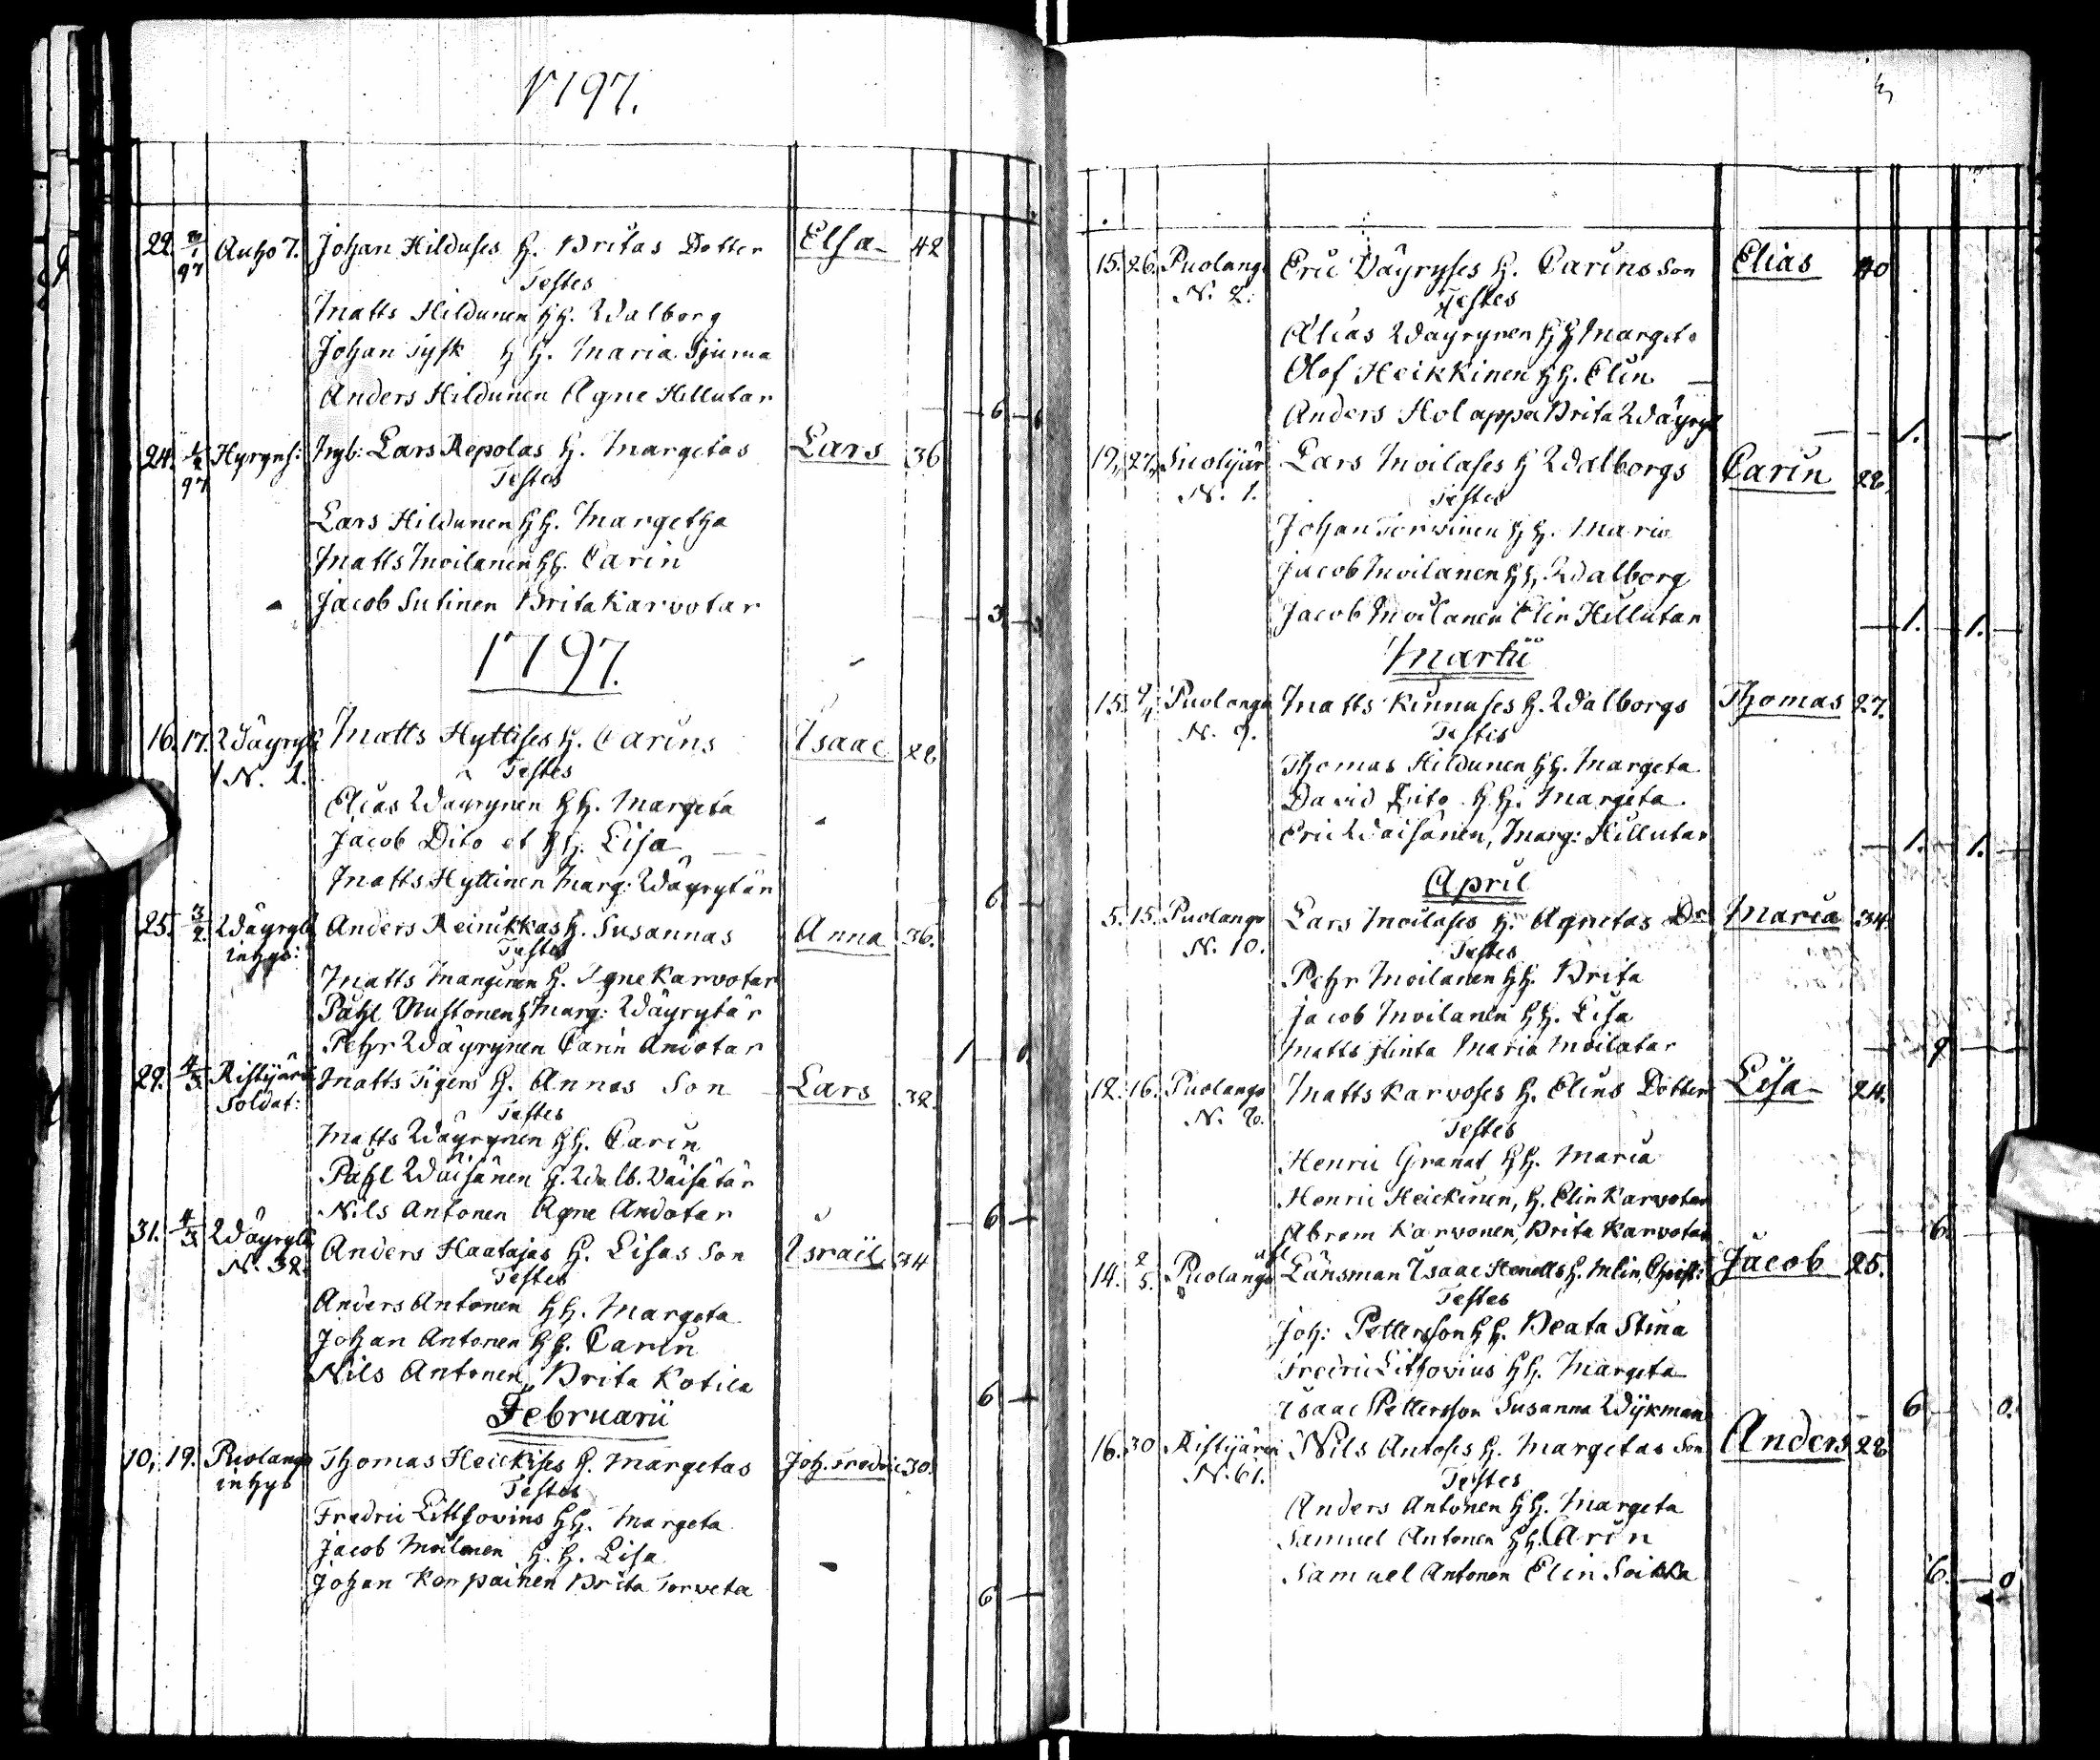 1797.
22. 3/1 97 Auho 7. Johan Hilduses H. Britas Dotter Elsa 42
Testes
Matts Hildunen HH. Walborg
Johan Tysk HH. Maria Sjuma
Anders Hildunen Agne Hillutar
6
24. 1/2 97 Hyrynß: Inyb: Lars Repolas H. Margetas Lars 36
Testes
Lars Hildunen HH. Margetha
Matts Moilanen HH. Carin
Jacob Sutinen Brita Karvotar
3
1797.
16. 17. Wäyryl: Matts Hyttises H. Carins Isaac 28
N. 1. Testes
Elias Wäyrynen HH. Margeta
Jacob Dito et HH. Lisa
Matts Hyttinen Marg: Wäyrytär
6
25. 3/2. Wäyryl: Anders Reinikkas H. Susannas Anna 36.
inhys: Testes
Matts Manginen H. Agne Karvotar
Påhl Mustonen H Marg: Wäyrytär
Pehr Wäyrynen Carin Andotar
1 0
29. 4/3 Ristijärvi Matts Tigens H. Annas Son Lars 32.
Soldat: Testes
Matts Wäyrynen HH. Carin
Påhl Wäisänen H. Walb. Väisätär
Nils Antonen Agne Andotar
6
31. 4/3 Wäyryl: Anders Haatajas H. Lisas Son Israël 34
N. 32. Testes
Anders Antonen HH. Margeta
Johan Antonen HH. Carin
Nils Antonen, Brita Kotila
6
Februarii
10, 19. Puolango Thomas Heickises H. Margetas Joh. Fredric 30.
inhys Testes
Fredric Litthovius HH. Margeta
Jacob Moilanen H.H. Lisa
Johan Korpainen Brita Torveta
6
15. 26. Puolango Eric Väyryses H. Carins Son Elias 40
N. 2. Testes
Elias Wäyrynen HH Margeta
Olof Heikkinen HH. Elin
Anders Holappa Brita Wäyryt
1.
19, 27, Suolijär Lars Moilases H Walborgs Carin 28.
N. 1. Testes
Johan Torvinen HH. Maria
Jacob Moilanen HH. Walborg
Jacob Moilanen Elin Hillutar
1. 1.
Martii
15. 9/4 Puolango Matts Kinnuses H. Walborgs Thomas 27.
N. 9. Testes
Thomas Hildunen HH. Margeta
David Dito HH. Margeta
Eric Waisänen, Marg: Hillutar
1. 1.
April
5. 15. Puolango Lars Moilases H. Agnetas Dr Maria 34.
N. 10. Testes
Pehr Moilanen HH. Brita
Jacob Moilanen HH. Lisa
Matts Flinta Maria Moilatar
9
12. 16. Puolango Matts Karvoses H. Elins Dotter Lisa 24.
N. Testes
Henric Granat HH. Maria
Henric Heickinen, H. Elin Karvotar
Abram Karvonen, Brita Karvotar
6.
14. 2/5. Puolango Länsman Isaac H. Christ: Jacob 25.
Testes
Joh: Pettersson HH. Beata Stina
Fredric Litthovius HH. Margeta
Isaac Pettersson Susanna Wijkman
6 0.
16. 30 Ristijärvi Nils Antoses H. Margetas Son Anders 28
N. 61. Testes
Anders Antonen HH. Margeta
Samuel Antonen HH. Carin
Samuel Antonen Elin Soikka
6. 0